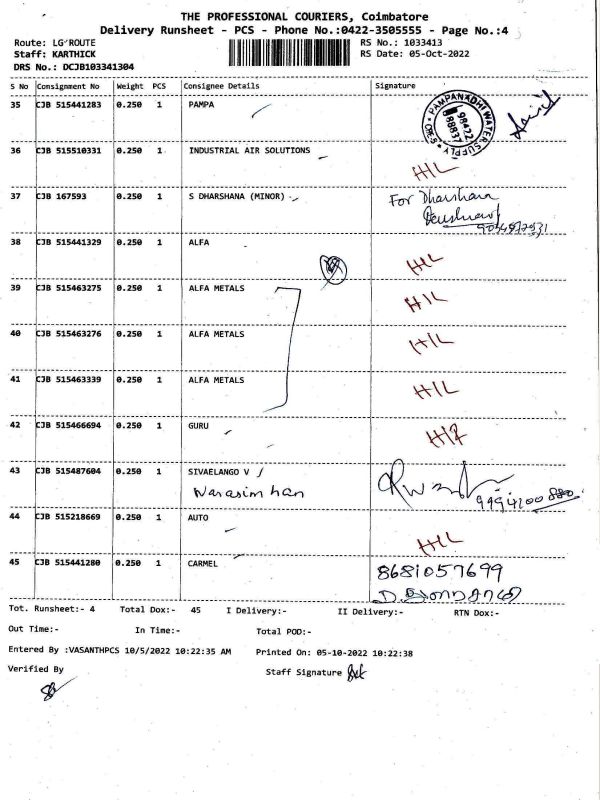 THE PROFESSIONAL COURIERS, Coimbatore
Delivery Runsheet - PCS - Phone No.:0422-3505555 - Page No.:4
Route: LG ROUTE RS No.: 1033413
Staff: KARTHICK RS Date: 05-Oct-2022
DRS No.: DCJB103341304
S No Consignment No Weight PCS Consignee Details Signature
35 CJB 515441283 0.250 1 PAMPA
PAMPANADHI WATER SUPPLY
CBE-5
98422
88837
36 CJB 515510331 0.250 1 INDUSTRIAL AIR SOLUTIONS
H/L
37 CJB 167593 0.250 1 S DHARSHANA (MINOR)
For Dharshana
38 CJB 515441329 0.250 1 ALFA
H/L
39 CJB 515463275 0.250 1 ALFA METALS
H/L
40 CJB 515463276 0.250 1 ALFA METALS
H/L
41 CJB 515463339 0.250 1 ALFA METALS
H/L
42 CJB 515466694 0.250 1 GURU
43 CJB 515487604 0.250 1 SIVAELANGO V
Narasimhan
44 CJB 515218669 0.250 1 AUTO
H/L
45 CJB 515441280 0.250 1 CARMEL
8681057699
Tot. Runsheet:- 4 Total Dox:- 45 I Delivery:- II Delivery:- RTN Dox:-
Out Time:- In Time:- Total POD:-
Entered By :VASANTHPCS 10/5/2022 10:22:35 AM Printed On: 05-10-2022 10:22:38
Verified By Staff Signature